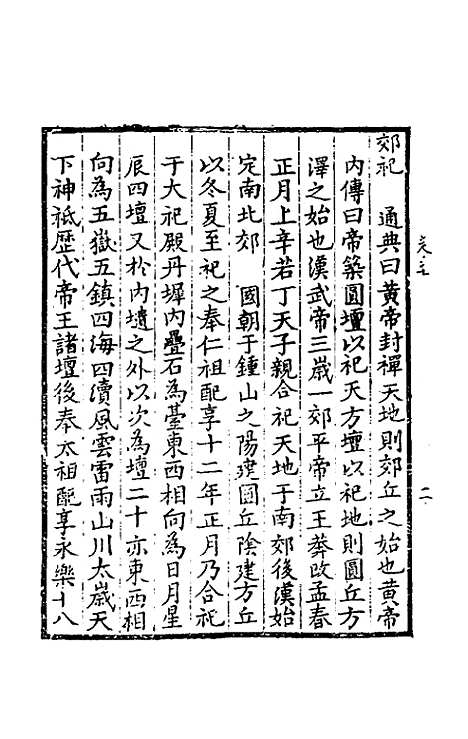 郊祀　通典曰黃帝封禪天地則郊丘之始也黃帝
內傳曰帝築圓壇以祀天方壇以祀地則圓丘方
澤之始也漢武帝三歲一郊平帝立王莽改孟春
正月上辛若丁天子親合祀天地于南郊後漢始
定南北郊　國朝于鍾山之陽建圓丘陰建方丘
以冬夏至祀之奉仁祖配享十二年正月乃合祀
于大祀殿丹墀內疊石為臺東西相向為日月星
辰四壇又於內壝之外以次為壇二十亦東西相
向為五嶽五鎮四海四瀆風雲雷雨山川太歲天
下神祇歷代帝王諸壇後奉太祖配享永樂十八
卷三
二